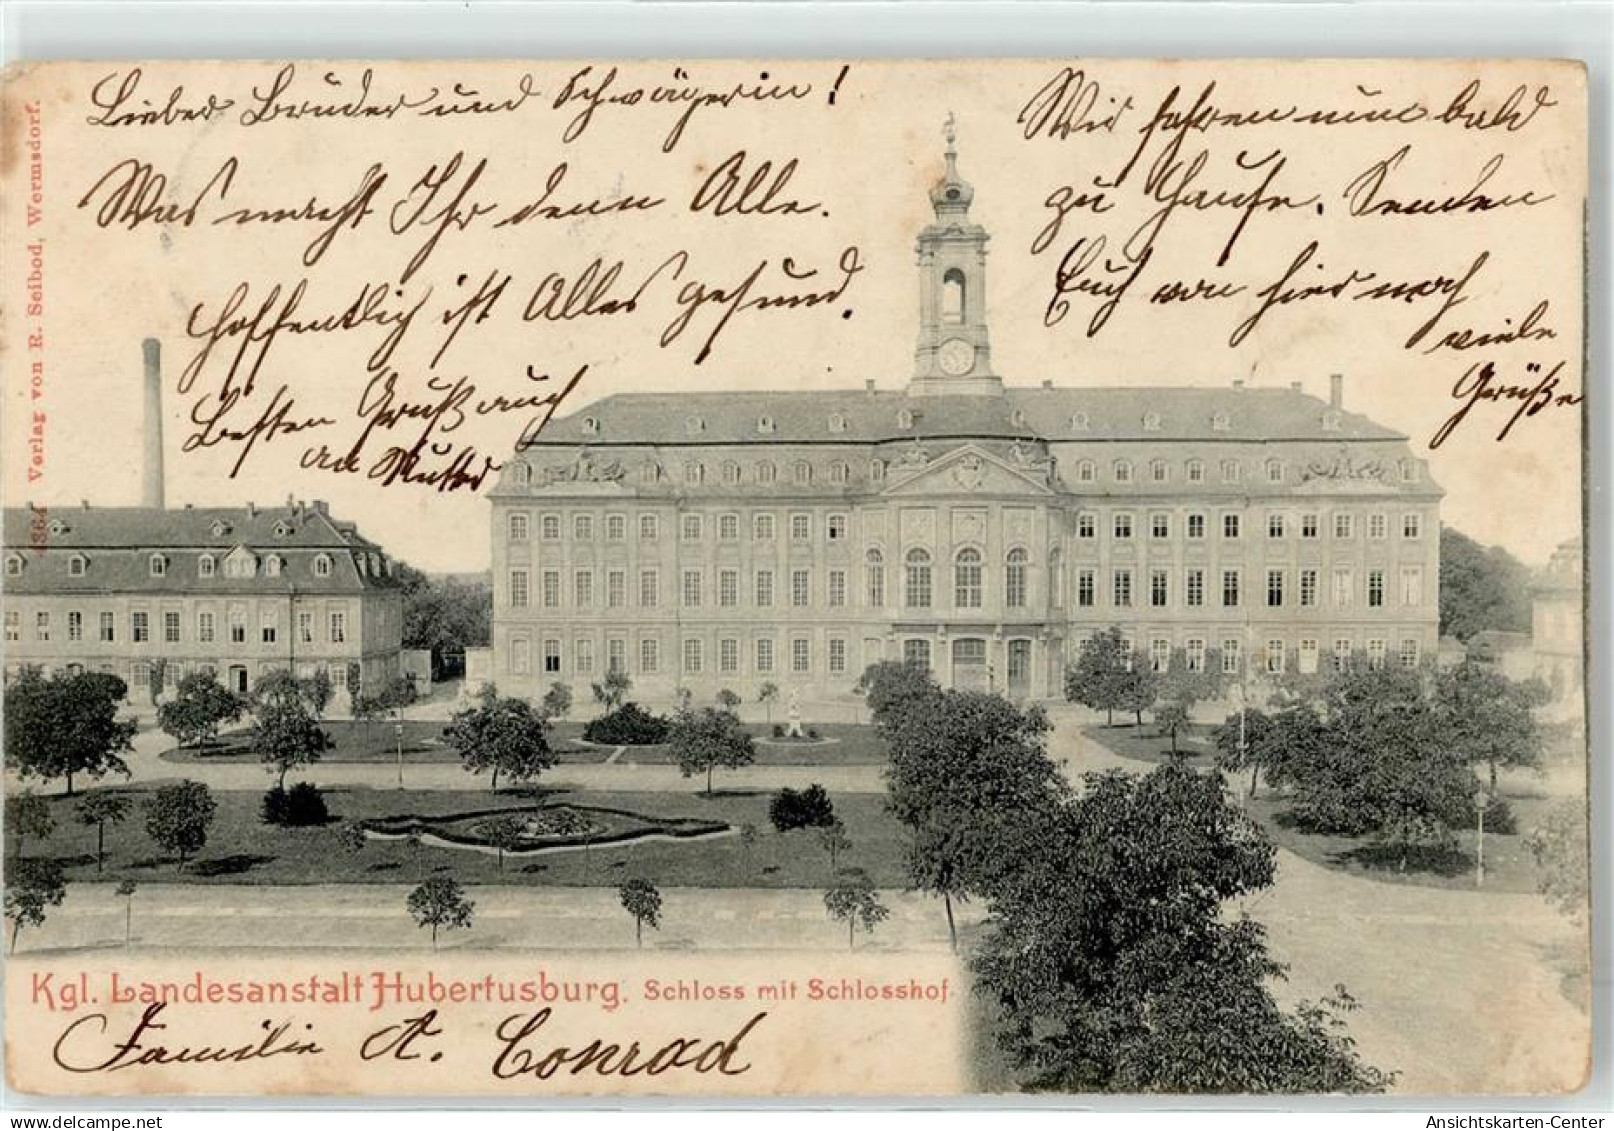 Lieber Bruder und Schwägerin!
Was macht Ihr denn Alle.
Hoffentlich ist Alles gesund.
Besten Gruß auch
an Mutter
Wir fahren nun bald
zu Hause. Senden
Euch von hier noch
viele
Grüße
4364 Verlag von R. Seibod, Wermsdorf.
Kgl. Landesanstalt Hubertusburg. Schloss mit Schlosshof.
Familie A. Conrad
www.oldthing.de
Ansichtskarten-Center